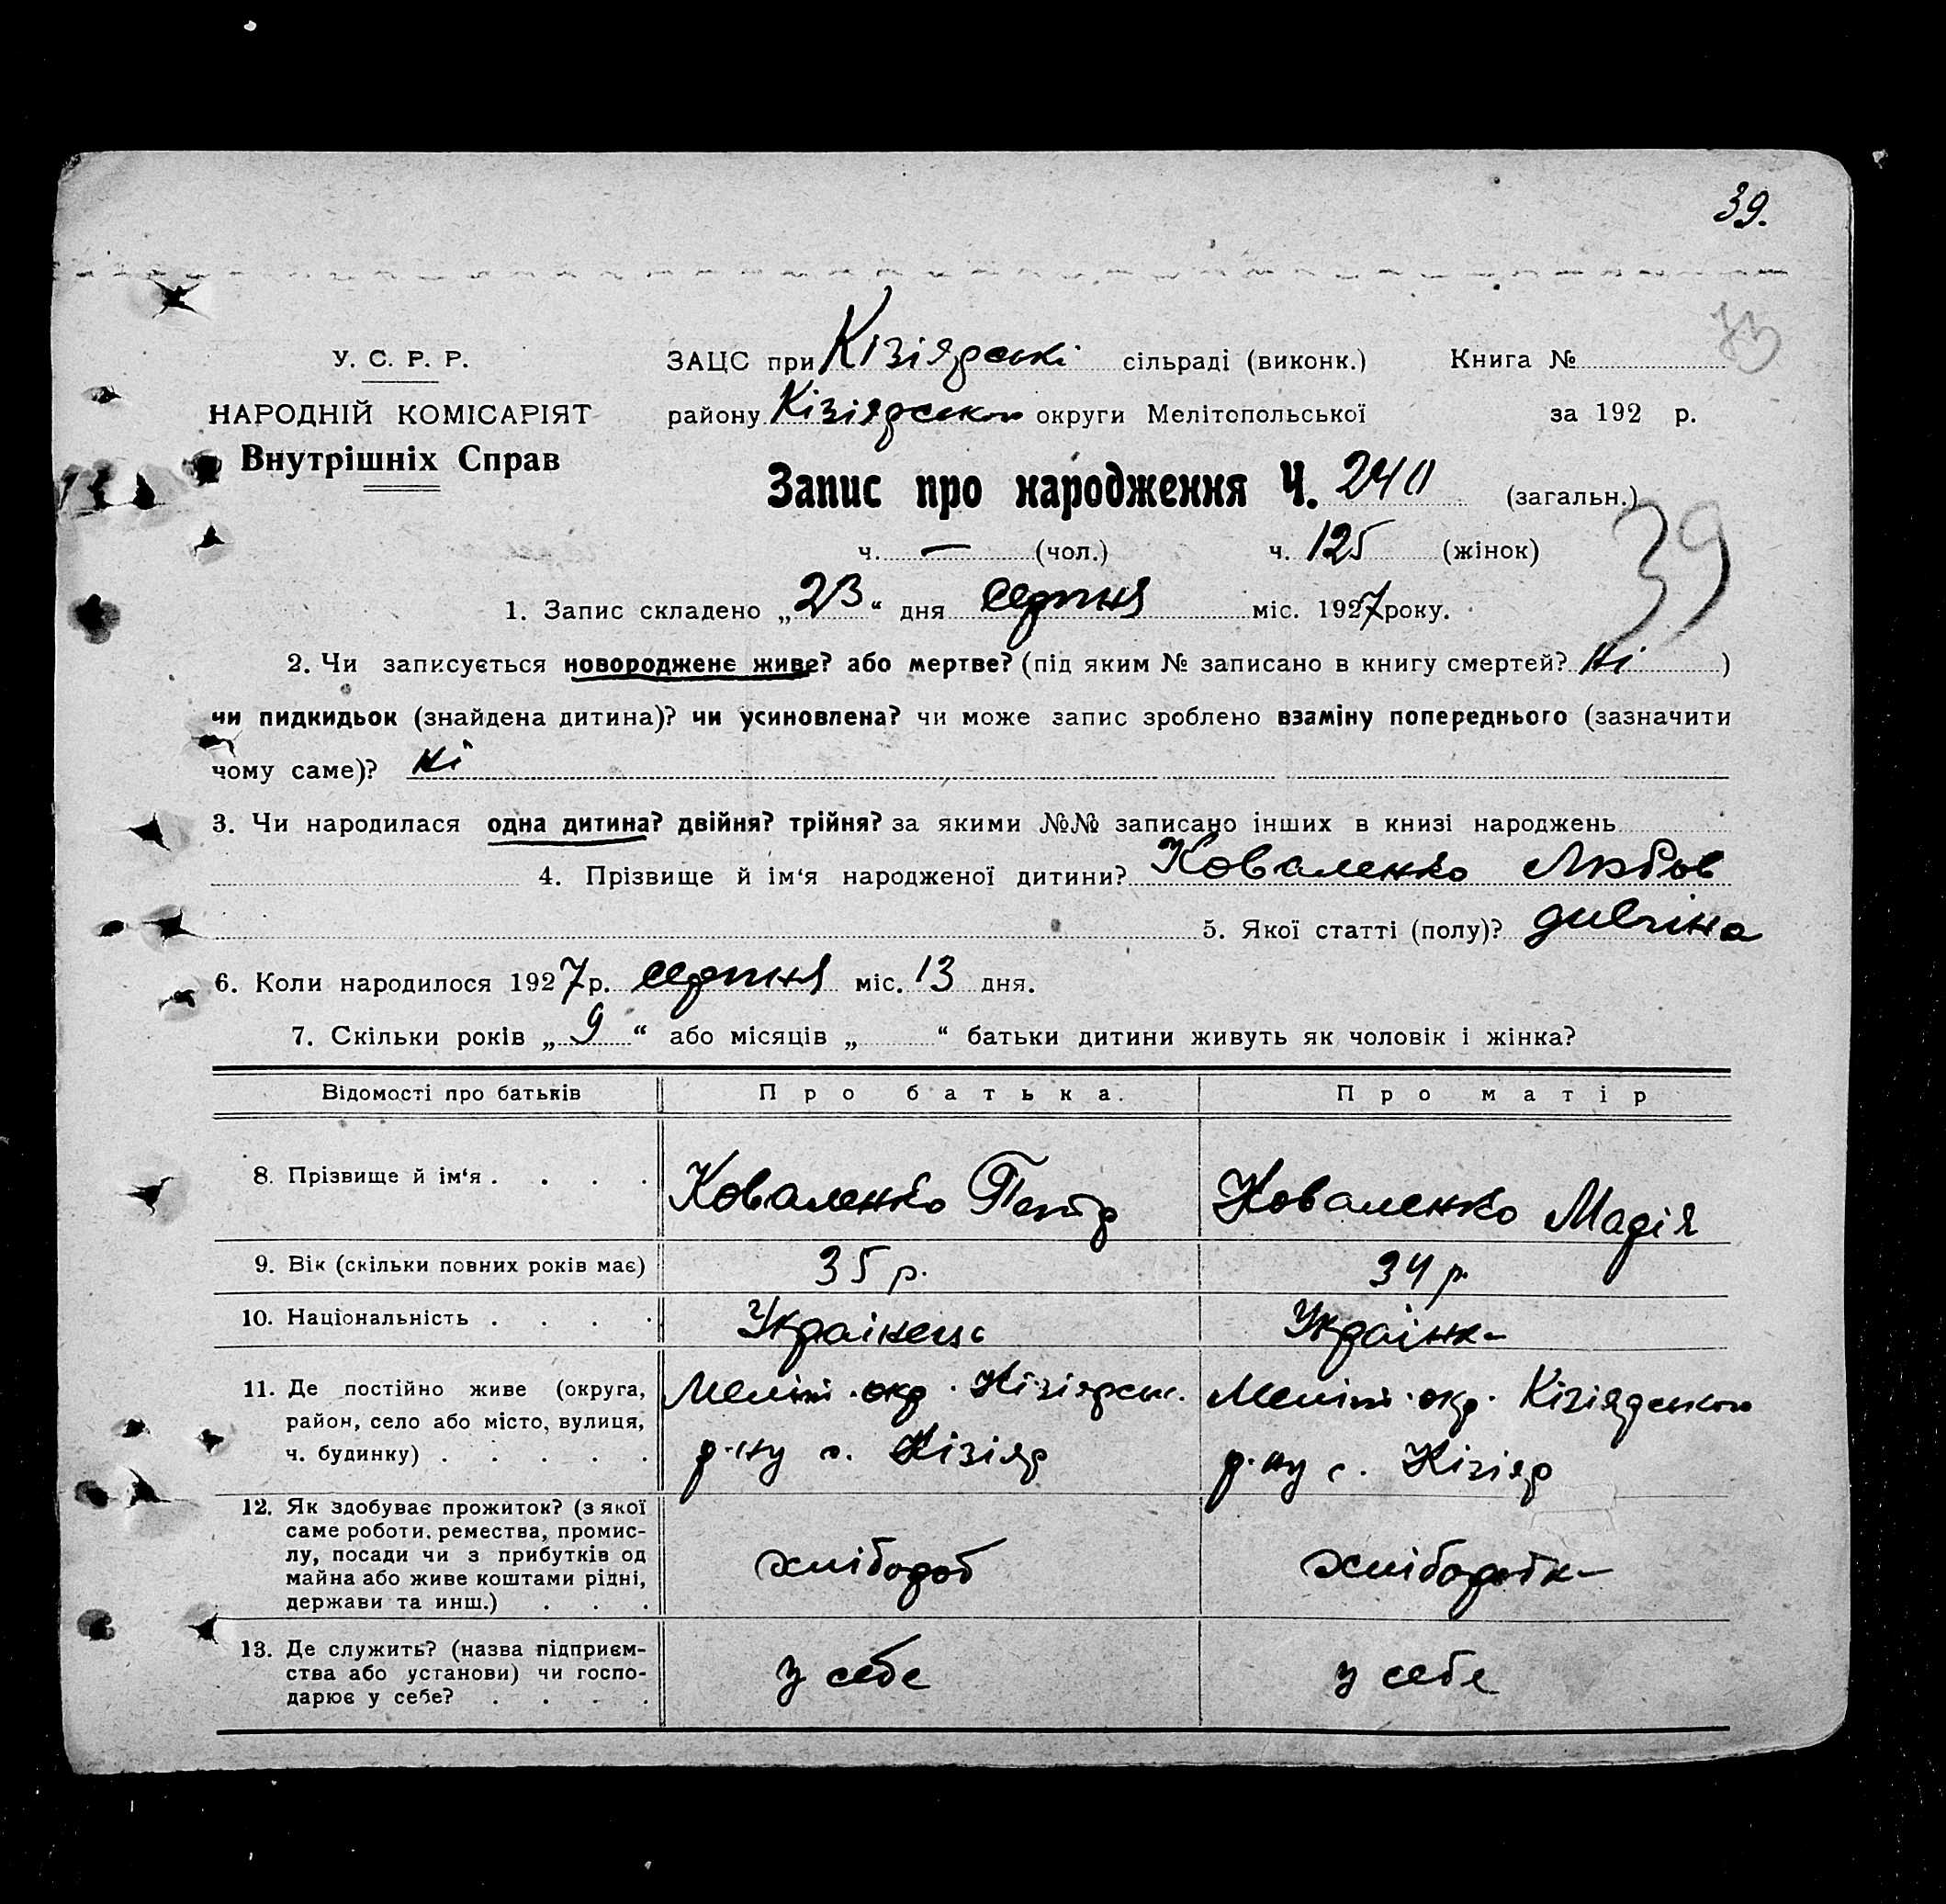 39.
У. С. Р. Р.
НАРОДНІЙ КОМІСАРІЯТ
Внутрішніх Справ
ЗАЦС при Кізіярські сільраді (виконк.) Книга №
району Кізіярсько округи Мелітопольської за 192 р.
Запис про народження Ч. 240 (загальн.)
39
ч. — (чол.) ч. 125 (жінок)
1. Запис складено „23“ дня серпня міс. 1927 року.
2. Чи записується новороджене живе? або мертве? (під яким № записано в книгу смертей? Ні )
чи пидкидьок (знайдена дитина)? чи усиновлена? чи може запис зроблено взаміну попереднього (зазначити
чому саме)? Ні
3. Чи народилася одна дитина? двійня? трійня? за якими №№ записано інших в книзі народжень
4. Прізвище й ім‘я народженої дитини? Коваленко Любов
5. Якої статті (полу)? дивчіна
6. Коли народилося 1927 р. серпня міс. 13 дня.
7. Скільки років „ 9 “ або місяців „ “ батьки дитини живуть як чоловік і жінка?
Відомості про батьків Про батька. Про матір
8. Прізвище й ім‘я . . . . Коваленко Петр Коваленко Марія
9. Вік (скільки повних років має) 35 р. 34 р.
10. Національність . . . . Українець Українк-
11. Де постійно живе (округа, Меліт. окр. Кізіярськ. Меліт. окр. Кізіярського
район, село або місто, вулиця, р-ну с. Кізіяр р-ну с. Кізіяр
ч. будинку) . . . . .
12. Як здобуває прожиток? (з якої
саме роботи. ремества, промис-
лу, посади чи з прибутків од хлібороб хліборобк-
майна або живе коштами рідні,
держави та инш.) . . .
13. Де служить? (назва підприєм-
ства або установи) чи госпо- у себе у себе
дарює у себе? . . . .